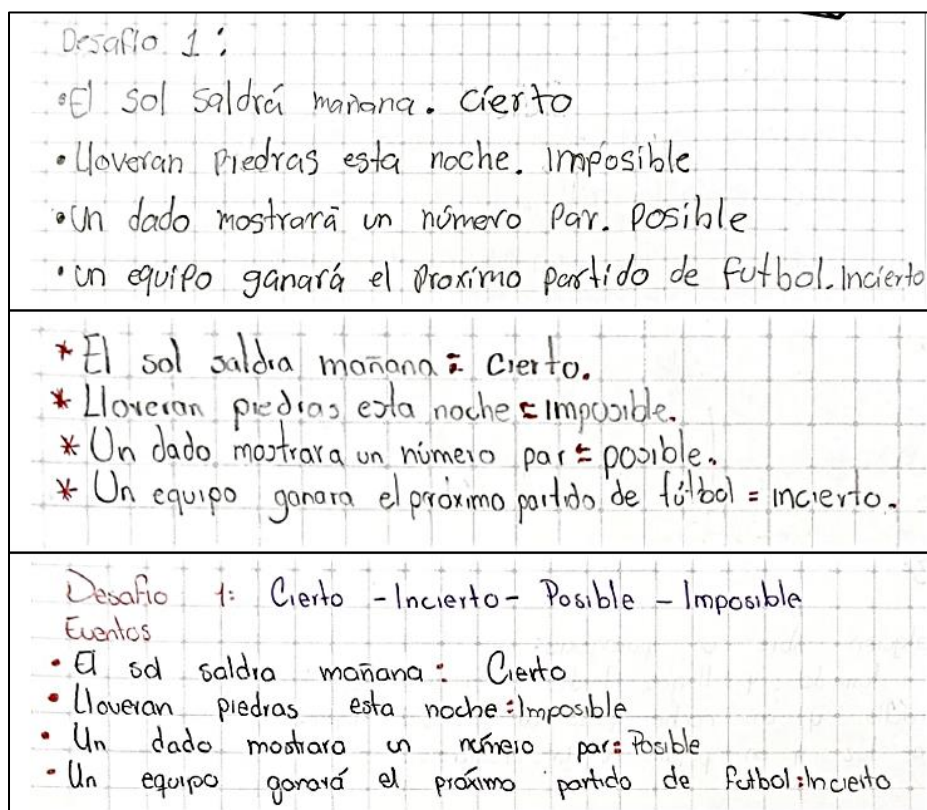 Desafío 1:
•El sol saldrá mañana. Cierto
•Lloveran piedras esta noche. Imposible
•Un dado mostrará un número Par. Posible
•un equipo ganará el proximo partido de futbol. Incierto
* El sol saldra mañana = Cierto.
* Lloveran piedras esta noche = imposible.
* Un dado mostrara un número par = posible.
* Un equipo ganara el próximo partido de fútbol = incierto.
Desafio 1: Cierto - Incierto - Posible - Imposible
Eventos
• El sol saldra mañana: Cierto
• Lloveran piedras esta noche: Imposible
• Un dado mostrara un número par: Posible
• Un equipo ganará el próximo partido de futbol: Incierto